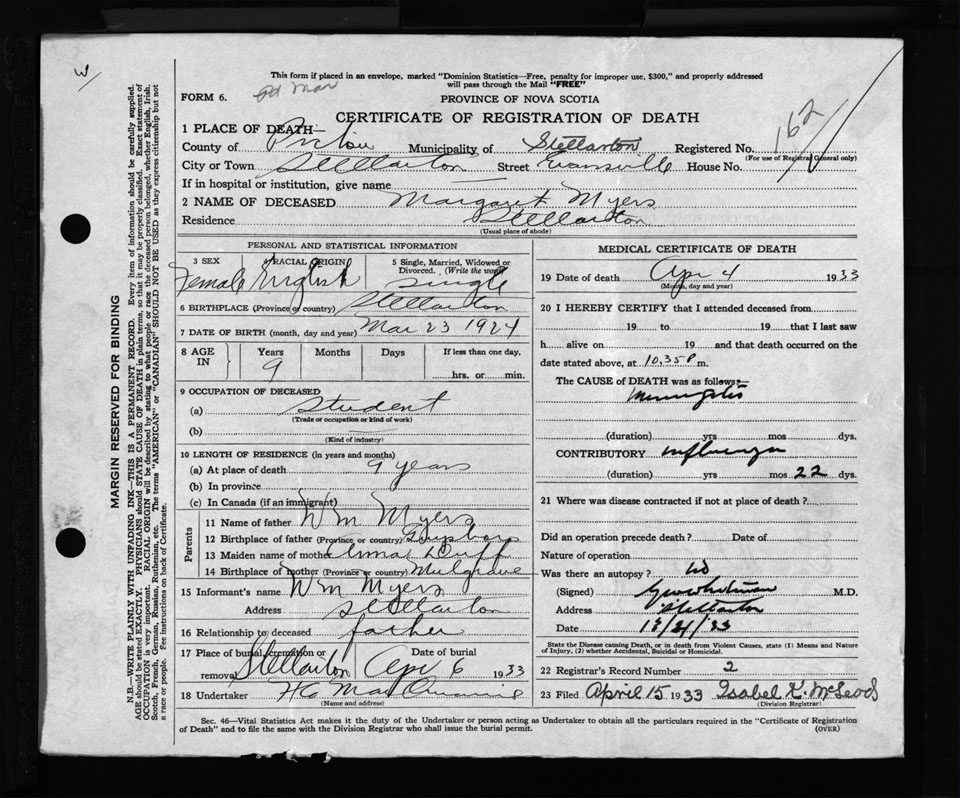 W
This form if placed in an envelope, marked "Dominion Statistics—Free, penalty for improper use, $300," and properly addressed
will pass through the Mail "FREE"
FORM 6.
PROVINCE OF NOVA SCOTIA
CERTIFICATE OF REGISTRATION OF DEATH
162
1 PLACE OF DEATH—
County of Pictou Municipality of Stellarton Registered No.
(For use of Registrar General only)
City or Town Stellarton Street Evansville House No.
If in hospital or institution, give name —
2 NAME OF DECEASED Margaret Myers
Residence Stellarton
(Usual place of abode)
MARGIN RESERVED FOR BINDING
N.B.—WRITE PLAINLY WITH UNFADING INK—THIS IS A PERMANENT RECORD. Every item of information should be carefully supplied.
AGE should be stated EXACTLY. PHYSICIANS should STATE CAUSE OF DEATH in plain terms, so that it may be properly classified. Exact statement of
OCCUPATION is very important. RACIAL ORIGIN will be described by stating to what people or race the deceased person belonged, whether English, Irish,
Scotch, French, German, Russian, Ruthenian, etc. The terms "AMERICAN" or "CANADIAN" SHOULD NOT BE USED as they express citizenship but not
a race or people. See instructions on back of Certificate.
PERSONAL AND STATISTICAL INFORMATION
3 SEX 4 RACIAL ORIGIN 5 Single, Married, Widowed or
Divorced. (Write the word)
Female English Single
6 BIRTHPLACE (Province or country) Stellarton
7 DATE OF BIRTH (month, day and year) Mar 23 1924
8 AGE IN Years Months Days If less than one day,
9 hrs. or min.
9 OCCUPATION OF DECEASED
(a) Student
(Trade or occupation or kind of work)
(b)
(Kind of industry)
10 LENGTH OF RESIDENCE (in years and months)
(a) At place of death 9 years
(b) In province
(c) In Canada (if an immigrant)
Parents
11 Name of father Wm Myers
12 Birthplace of father (Province or country)
13 Maiden name of mother Duff
14 Birthplace of mother (Province or country) Mulgrave
15 Informant's name Wm Myers
Address Stellarton
16 Relationship to deceased father
17 Place of burial, cremation or Date of burial
removal Stellarton Apr 6 1933
18 Undertaker
(Name and address)
MEDICAL CERTIFICATE OF DEATH
19 Date of death Apr 4 1933
(Month, day and year)
20 I HEREBY CERTIFY that I attended deceased from
19 to 19 that I last saw
h alive on 19 and that death occurred on the
date stated above, at 10.35 P m.
The CAUSE OF DEATH was as follows:—
Meningitis
(duration) yrs mos dys.
CONTRIBUTORY Influenza
(duration) yrs mos 22 dys.
21 Where was disease contracted if not at place of death?
Did an operation precede death? Date of
Nature of operation
Was there an autopsy? No
(Signed) M.D.
Address Stellarton
Date
State the Disease causing Death, or in death from Violent Causes, state (1) Means and Nature
of Injury, (2) whether Accidental, Suicidal or Homicidal.
22 Registrar's Record Number 2
23 Filed April 15 1933 Isabel K. McLeod
(Division Registrar)
Sec. 46—Vital Statistics Act makes it the duty of the Undertaker or person acting as Undertaker to obtain all the particulars required in the "Certificate of Registration
of Death" and to file the same with the Division Registrar who shall issue the burial permit.
(OVER)